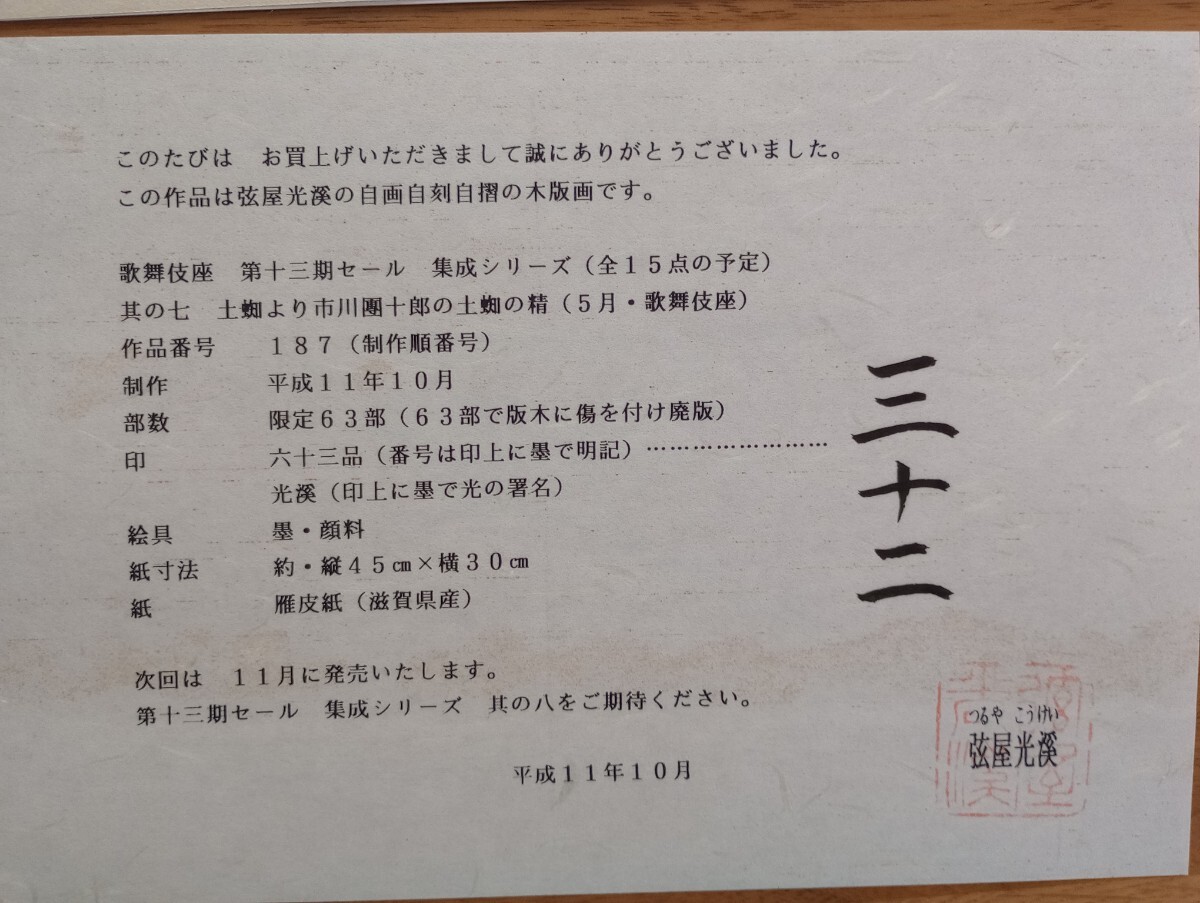 このたびは　お買上げいただきまして誠にありがとうございました。
この作品は弦屋光溪の自画自刻自摺の木版画です。
歌舞伎座　第十三期セール　集成シリーズ（全１５点の予定）
其の七　土蜘より市川團十郎の土蜘の精（５月・歌舞伎座）
作品番号　１８７（制作順番号）
制作　平成１１年１０月
部数　限定６３部（６３部で版木に傷を付け廃版）
印　六十三品（番号は印上に墨で明記）……………………
光溪（印上に墨で光の署名）
絵具　墨・顔料
紙寸法　約・縦４５㎝×横３０㎝
紙　雁皮紙（滋賀県産）
三十二
次回は　１１月に発売いたします。
第十三期セール　集成シリーズ　其の八をご期待ください。
平成１１年１０月
つるや こうけい
弦屋光溪